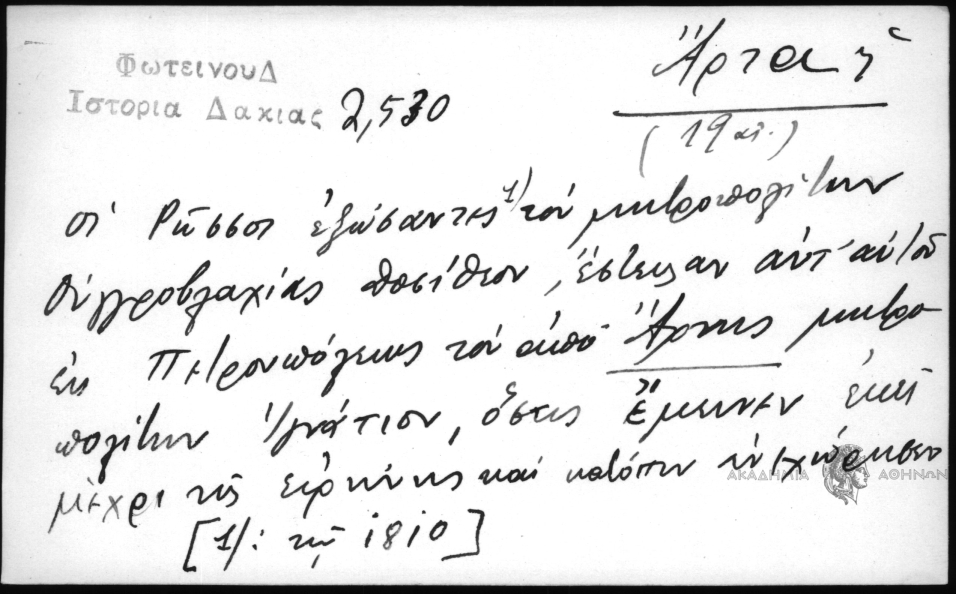 ΦωτεινουΔ
Ιστορια Δακιας 2,530
Ἄρτα ἡ
(19 αἰ.)
οἱ Ρῶσσοι ἐξώσαντες 1) τὸν μητροπολίτην
Οὐγγροβλαχίας Δοσίθεον, ἔστειλαν ἀντ' αὐτοῦ
ἐκ Πετρουπόλεως τὸν ἀπὸ Ἄρτης μητρο-
πολίτην Ἰγνάτιον, ὅστις ἔμεινεν ἐκεῖ
μέχρι τῆς εἰρήνης καὶ κατόπιν ἀνεχώρησεν
[1/: τῷ 1810]
ΑΚΑΔΗΜΙΑ ΑΘΗΝΩΝ